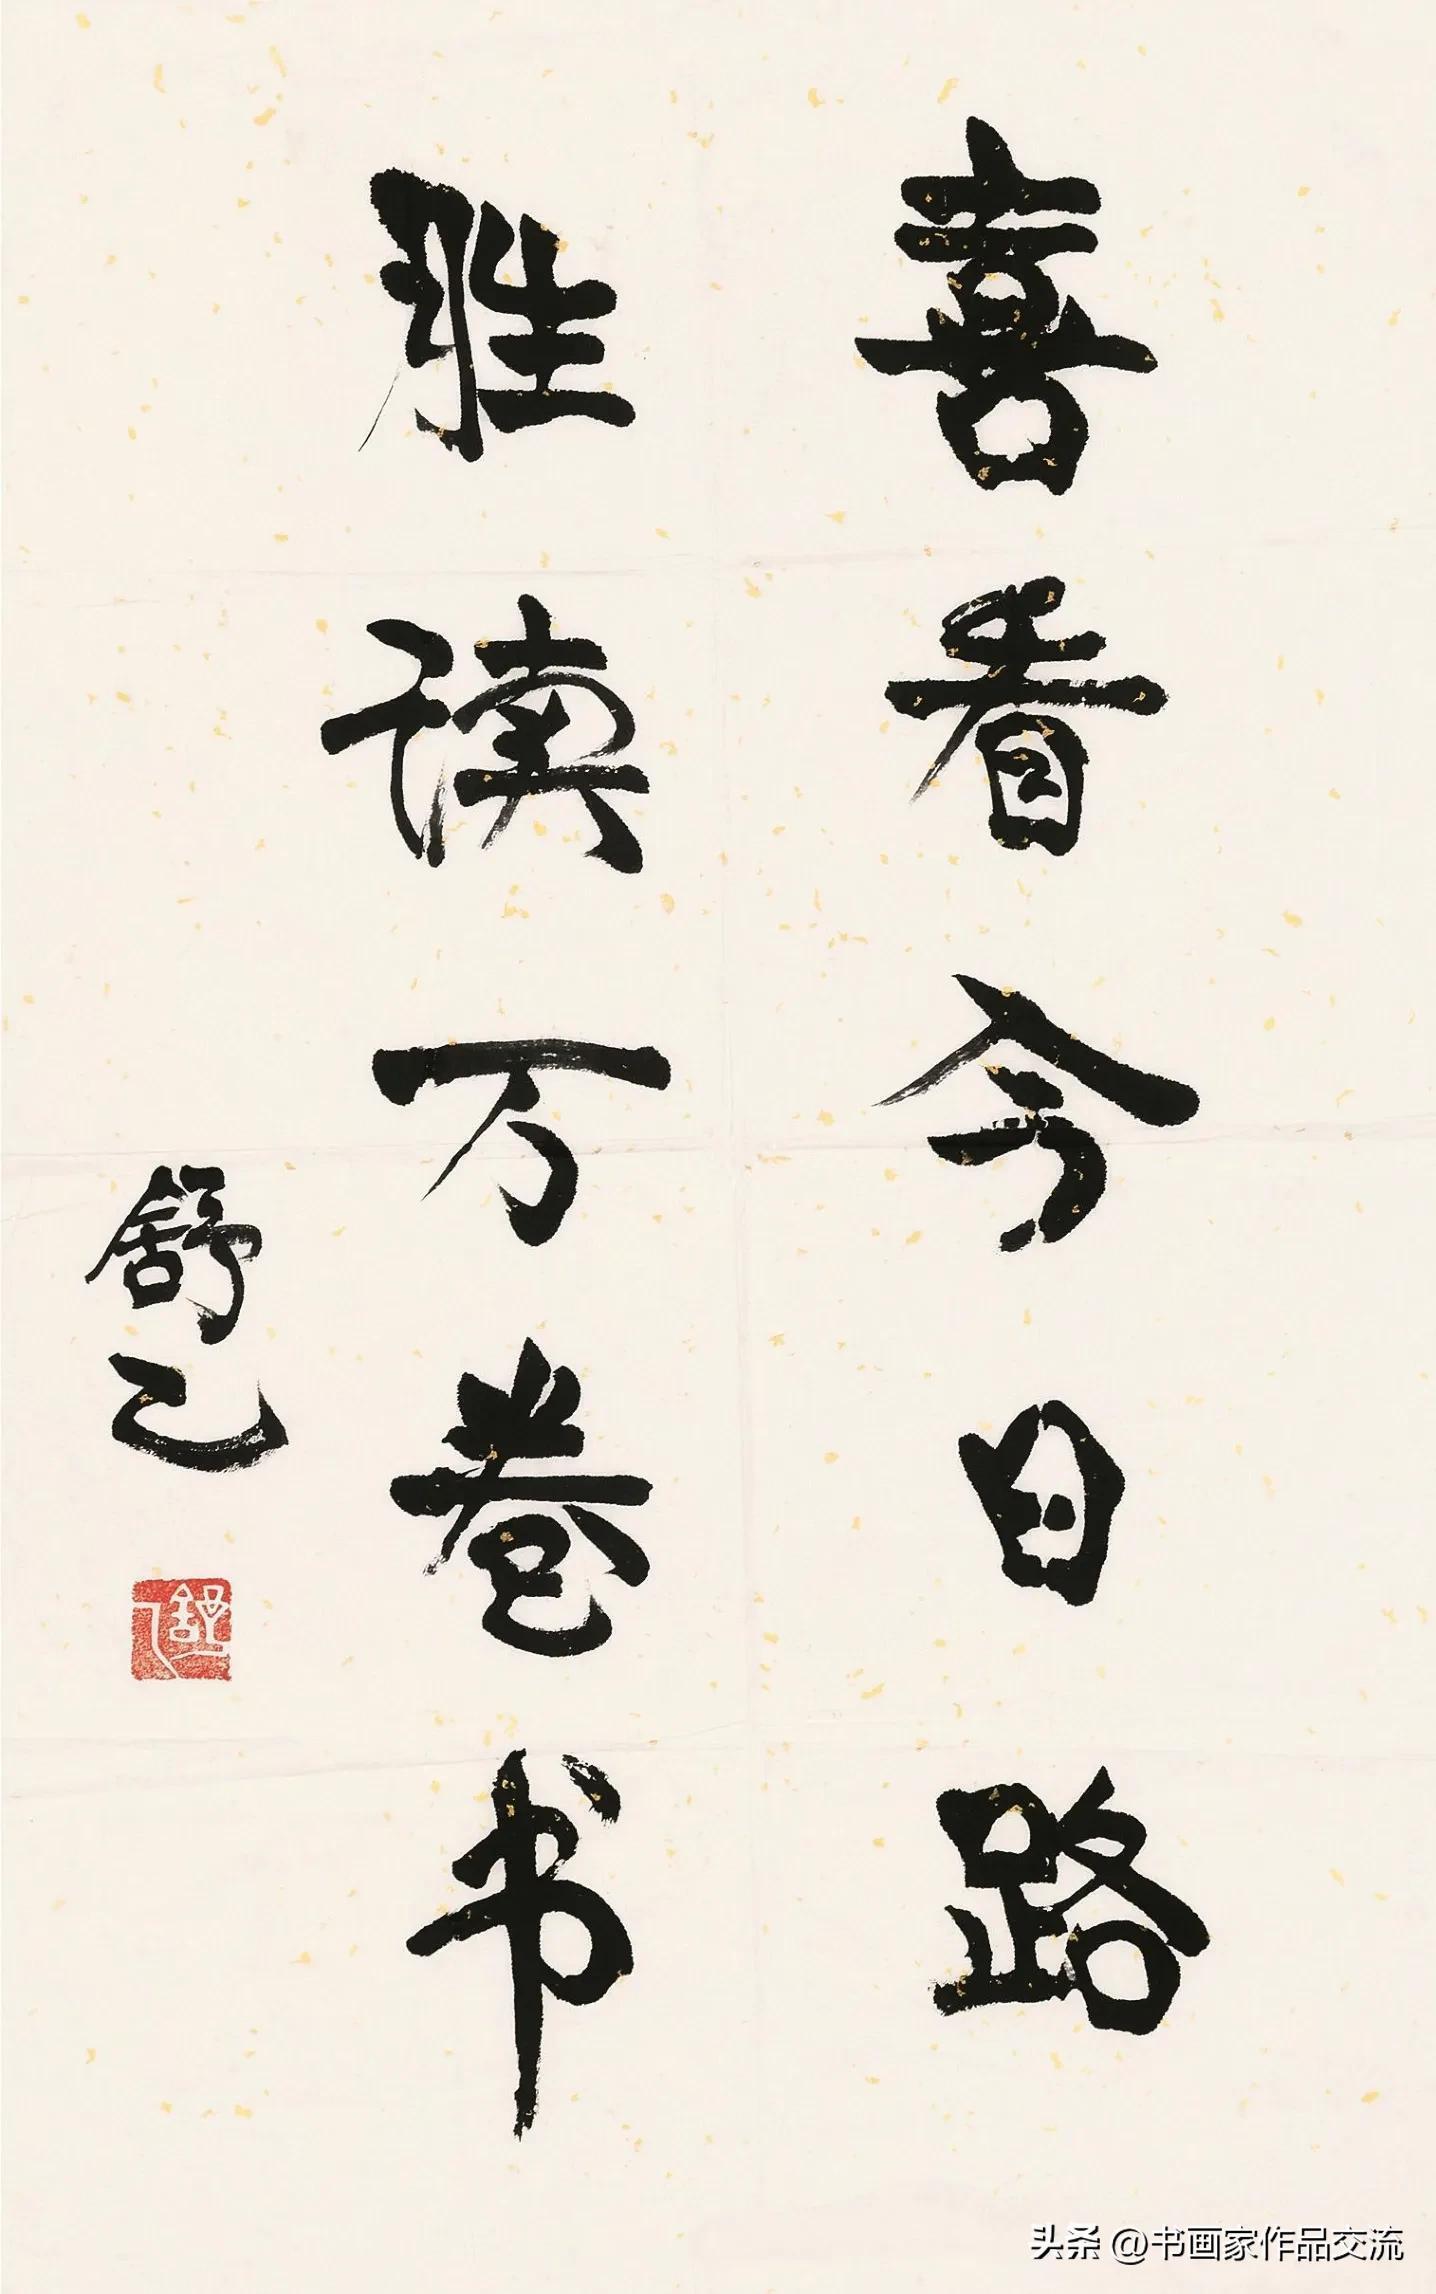 喜看今日路
胜读万卷书
舒乙
舒乙
头条 @书画家作品交流